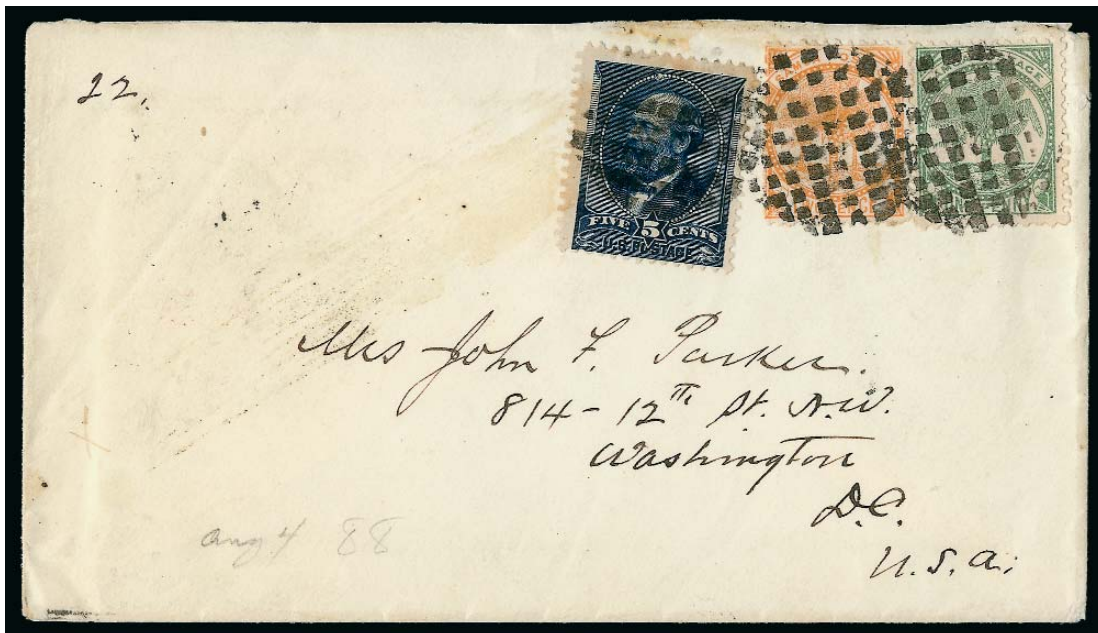 22.
FIVE 5 CENTS
U.S. POSTAGE
Mrs John F. Parker.
814 - 12th St. N.W.
Washington
D.C.
U.S.A.
Aug 4 88